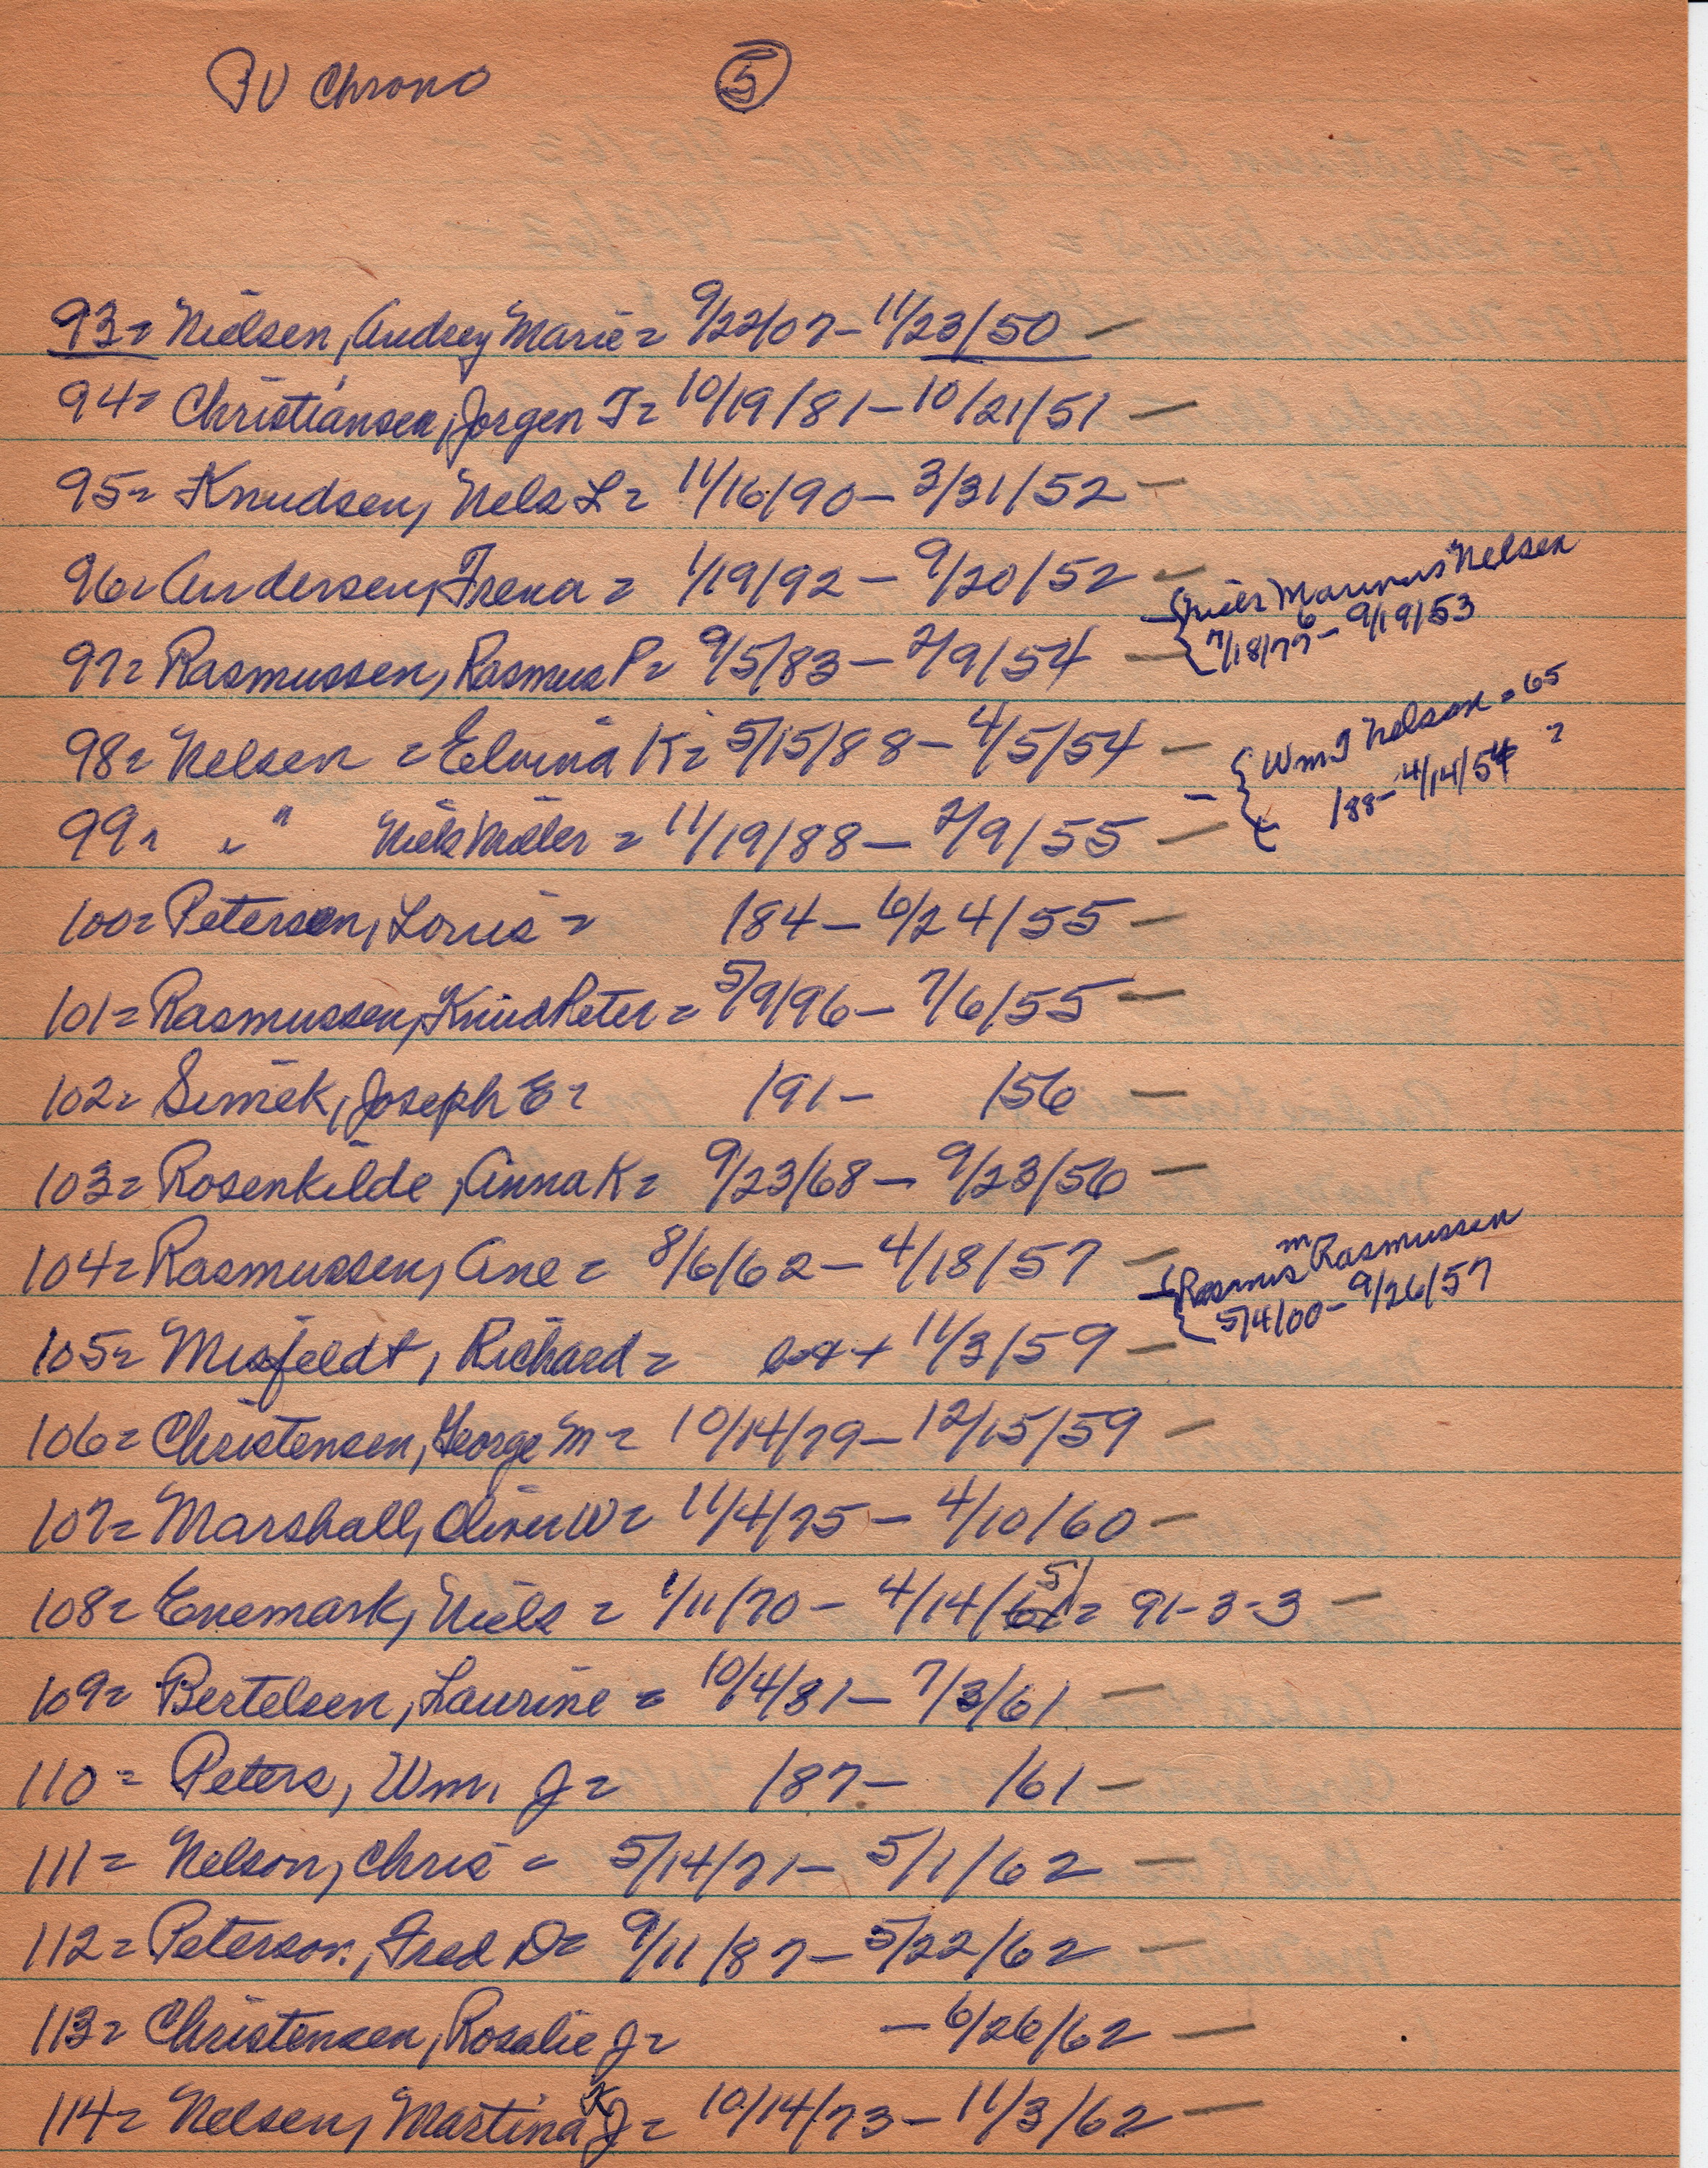 PV Chrono ⑤
93= Nielsen, Audrey Marie = 9/22/07 - 11/23/50 -
94= Christiansen, Jorgen T= 10/19/81 - 10/21/51 -
95= Knudsen, Nels L = 11/16/90 - 3/31/52 -
96= Andersen, Frena = 1/19/92 - 9/20/52 -
- { Niels Marinus Nelsen
7/18/77 6 - 9/19/53
97= Rasmussen, Rasmus P= 9/5/83 - 2/9/54 -
98= Nelsen = Elvina K= 5/15/88 - 4/5/54 -
- { Wm J Nelson = 65
/88 - 4/14/54 ?
99= " " Niels Möller = 11/19/88 - 2/9/55 -
100= Petersen, Louis = /84 - 6/24/55 -
101= Rasmussen, Knud Peter = 5/9/96 - 7/6/55 -
102= Simek, Joseph E= /91 - /56 -
103= Rosenkilde, Anna K= 9/23/68 - 9/23/56 -
104= Rasmussen, Ane = 8/6/62 - 4/18/57 -
- { Rasmus M Rasmussen
5/4/00 - 9/26/57
105= Misfeldt, Richard = 11/3/59 -
106= Christensen, George M = 10/14/79 - 12/15/59 -
107= Marshall, Oliver W= 11/4/75 - 4/10/60 -
108= Enemark, Niels = 1/11/70 - 4/14/61 = 91-3-3 -
109= Bertelsen, Laurine = 10/4/81 - 7/3/61 -
110= Peters, Wm. J= /87 - /61 -
111= Nelson, Chris = 5/14/71 - 5/1/62 -
112= Peterson, Fred D= 9/11/87 - 5/22/62 -
113= Christensen, Rosalie J= - 6/26/62 -
114= Nelsen, Martina K J= 10/14/73 - 11/3/62 -